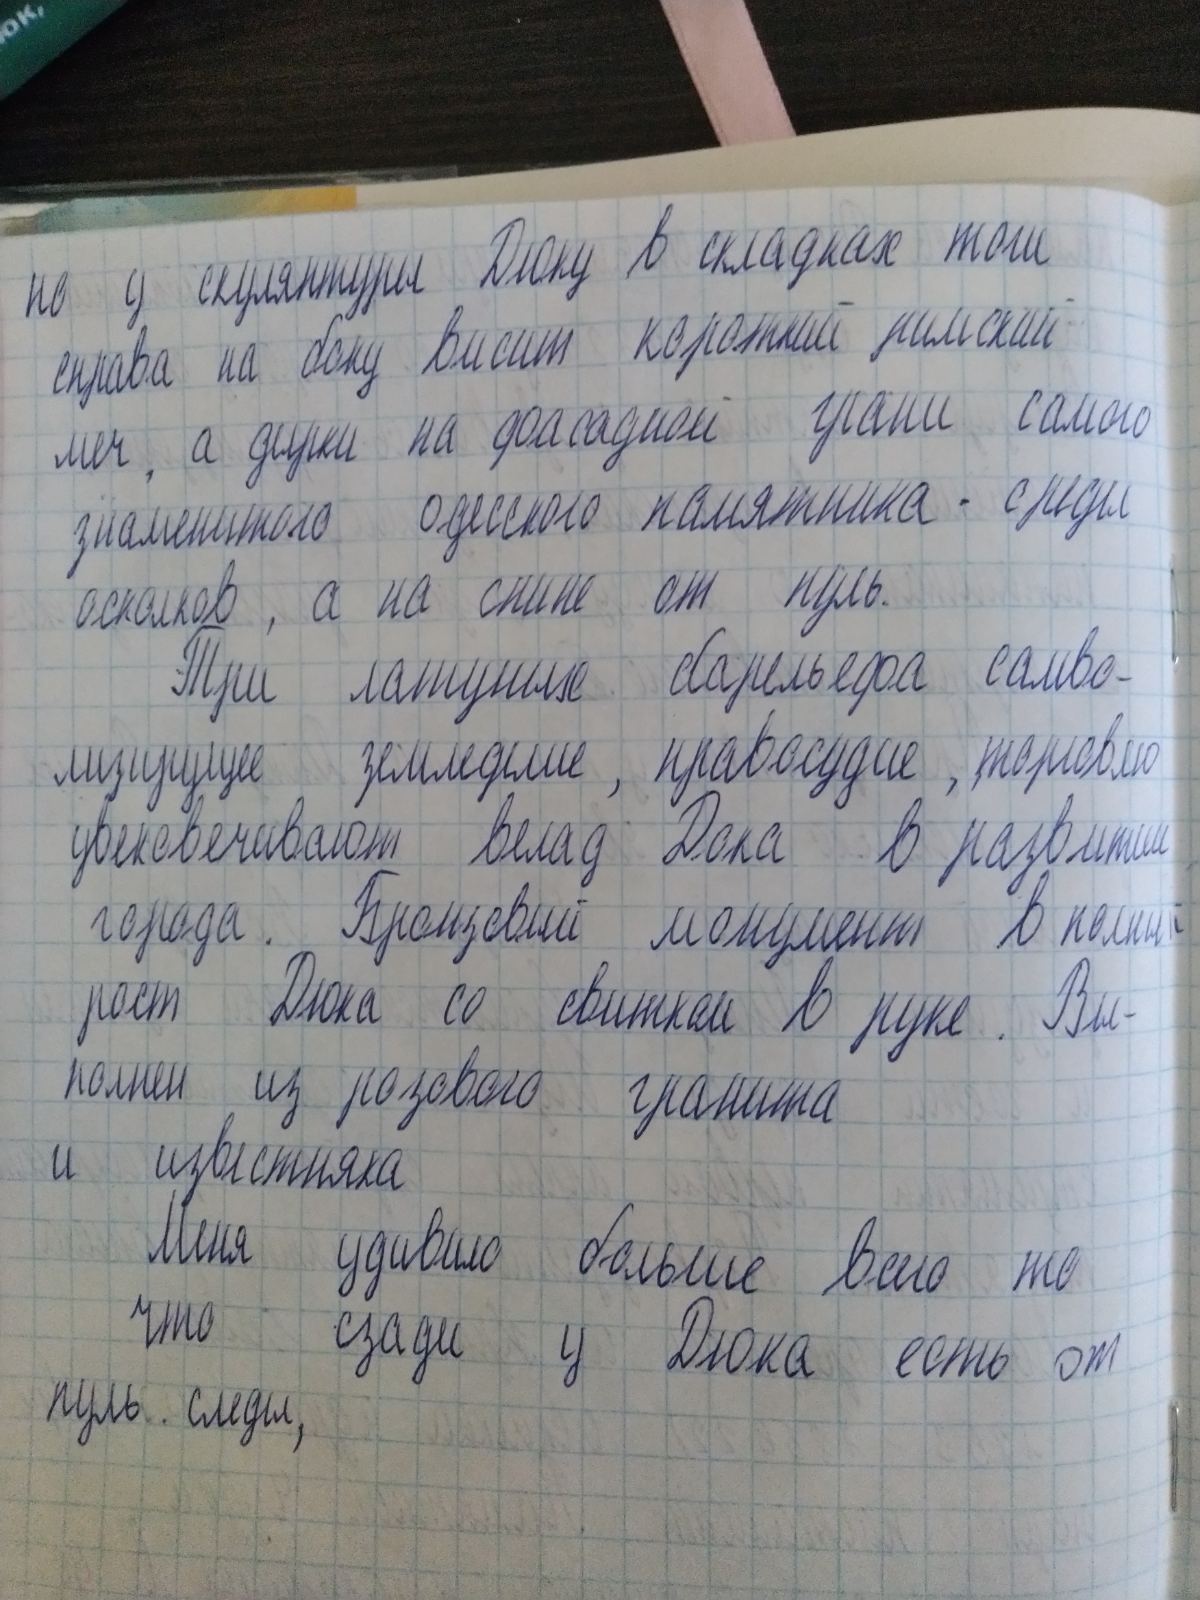 юк,
но у скуляптуры Дюку в складках тоги
справа на боку висит короткий римский
меч, а дырки на фасадной грани самого
знаменитого одесского памятника - среды
осколков, а на спине от пуль.
Три латуных барельефа самво-
лизирущее земледелие, правосудие, торговлю
увековечивают велад Дюка в развитии
города. Бронзовый монумент в полный
рост Дюка со свитком в руке. Вы-
полнен из розового гранита
и известняка
Меня удивило больше всего то
что сзади у Дюка есть от
пуль следы,